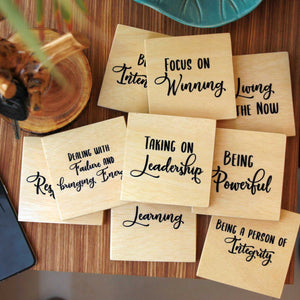 Focus on
Winning
Living
the Now
Dealing with
Failure and
Taking on
Leadership
Being
Powerful
Learning
Being a person of
Integrity